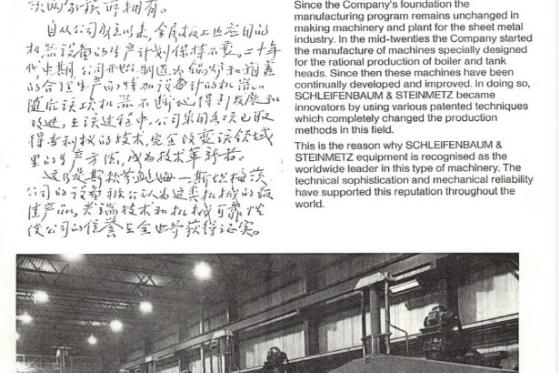 自从公司成立以来，金属板工业应用的
机器设备的生产计划保持不变。二十年
代中期，公司开始制造为锅炉和箱盖
的合理生产而特别设计的机器。
随后该项机器不断地得到发展和
改进，在该过程中，公司采用多项已取
得专利权的技术，完全改变该领域
里的生产方法，成为技术革新者。
公司的设备被公认为这类机械的最
佳产品。尖端技术和机械可靠性
使公司的信誉在全世界获得证实。
Since the Company's foundation the
manufacturing program remains unchanged in
making machinery and plant for the sheet metal
industry. In the mid-twenties the Company started
the manufacture of machines specially designed
for the rational production of boiler and tank
heads. Since then these machines have been
continually developed and improved. In doing so,
SCHLEIFENBAUM & STEINMETZ became
innovators by using various patented techniques
which completely changed the production
methods in this field.
This is the reason why SCHLEIFENBAUM &
STEINMETZ equipment is recognised as the
worldwide leader in this type of machinery. The
technical sophistication and mechanical reliability
have supported this reputation throughout the
world.